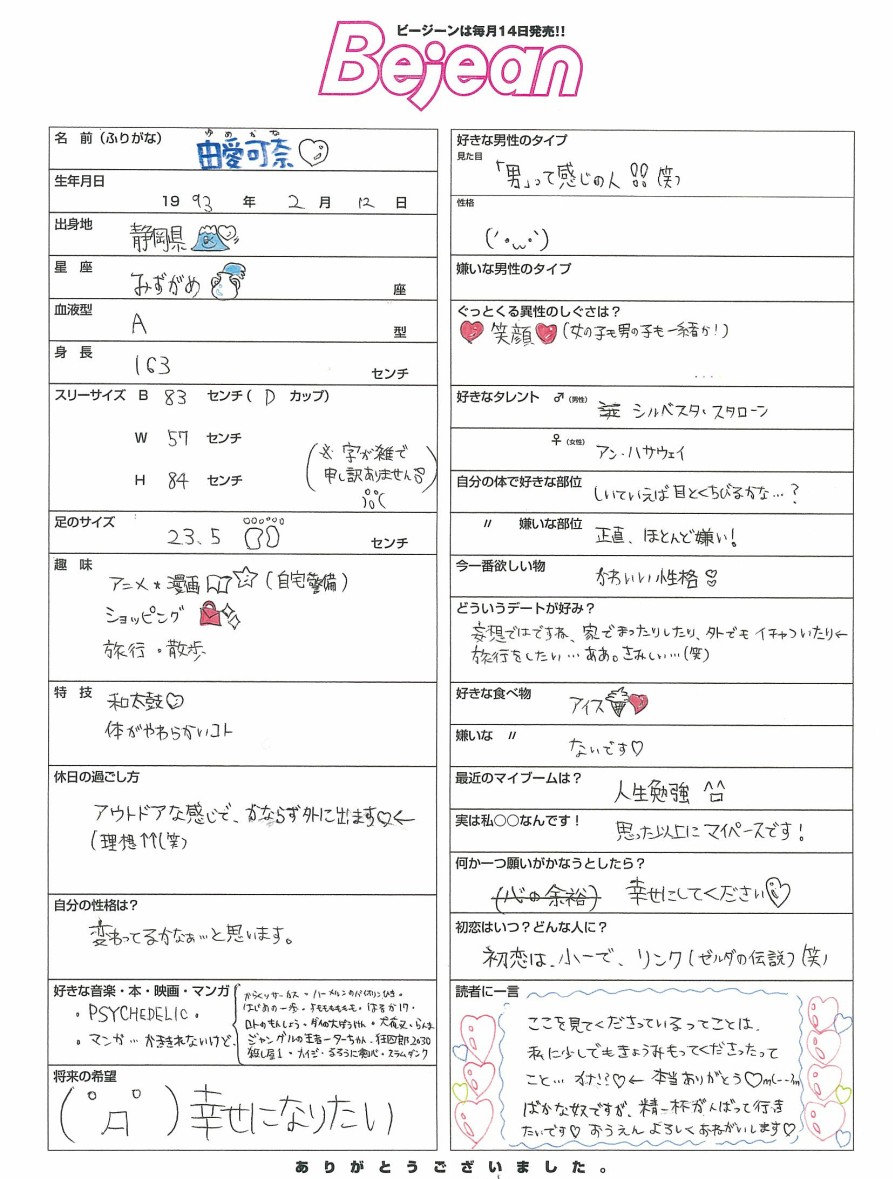 ビージーンは毎月14日発売!!
Bejean
名 前（ふりがな）
ゆめかな
由愛可奈
生年月日
19 93 年 2 月 12 日
出身地
静岡県
星 座
みずがめ 座
血液型
A 型
身 長
163 センチ
スリーサイズ B 83 センチ( D カップ)
W 57 センチ
H 84 センチ
(※ 字が雑で
申し訳ありません
足のサイズ
23.5 センチ
趣 味
アニメ★漫画 (自宅警備)
ショッピング
旅行・散歩
特 技
和太鼓♡
体がやわらかいコト
休日の過ごし方
アウトドアな感じで、かならず外に出ます♡←
(理想↑↑(笑)
自分の性格は？
変わってるかなぁ…と思います。
好きな音楽・本・映画・マンガ
・PSYCHEDELIC・
・マンガ…かききれないけど。
からくりサーカス・ハーメルンのバイオリンひき・
はじめの一歩・
ロトのもんしょう・ダイの大ぼうけん・犬夜叉・らんま
ジャングルの王者ターちゃん・狂四郎2030
殺し屋1・カイジ・るろうに剣心・スラムダンク
将来の希望
幸せになりたい
好きな男性のタイプ
見た目
「男」って感じの人!!(笑)
性格
(・ω・)
嫌いな男性のタイプ
ぐっとくる異性のしぐさは？
♥笑顔♥(女の子も男の子も一緒か！)
...
好きなタレント ♂(男性)
シルベスタ・スタローン
♀(女性)
アン・ハサウェイ
自分の体で好きな部位
しいていえば目とくちびるかな…？
〃 嫌いな部位
正直、ほとんど嫌い！
今一番欲しい物
かわいい性格
どういうデートが好み？
妄想ではですね、家でまったりしたり、外でもイチャついたり←
旅行をしたい…ああ。さみしい…(笑)
好きな食べ物
アイス
嫌いな 〃
ないです♡
最近のマイブームは？
人生勉強
実は私○○なんです！
思った以上にマイペースです！
何か一つ願いがかなうとしたら？
(心の余裕) 幸せにしてください
初恋はいつ？どんな人に？
初恋は、小一で、リンク(ゼルダの伝説)(笑)
読者に一言
ここを見てくださっているってことは、
私に少しでもきょうみもってくださったって
こと… !?♡← 本当ありがとう♡m(--)m
ばかな奴ですが、精一杯がんばって行き
たいです♡ おうえんよろしくおねがいします♡
ありがとうございました。